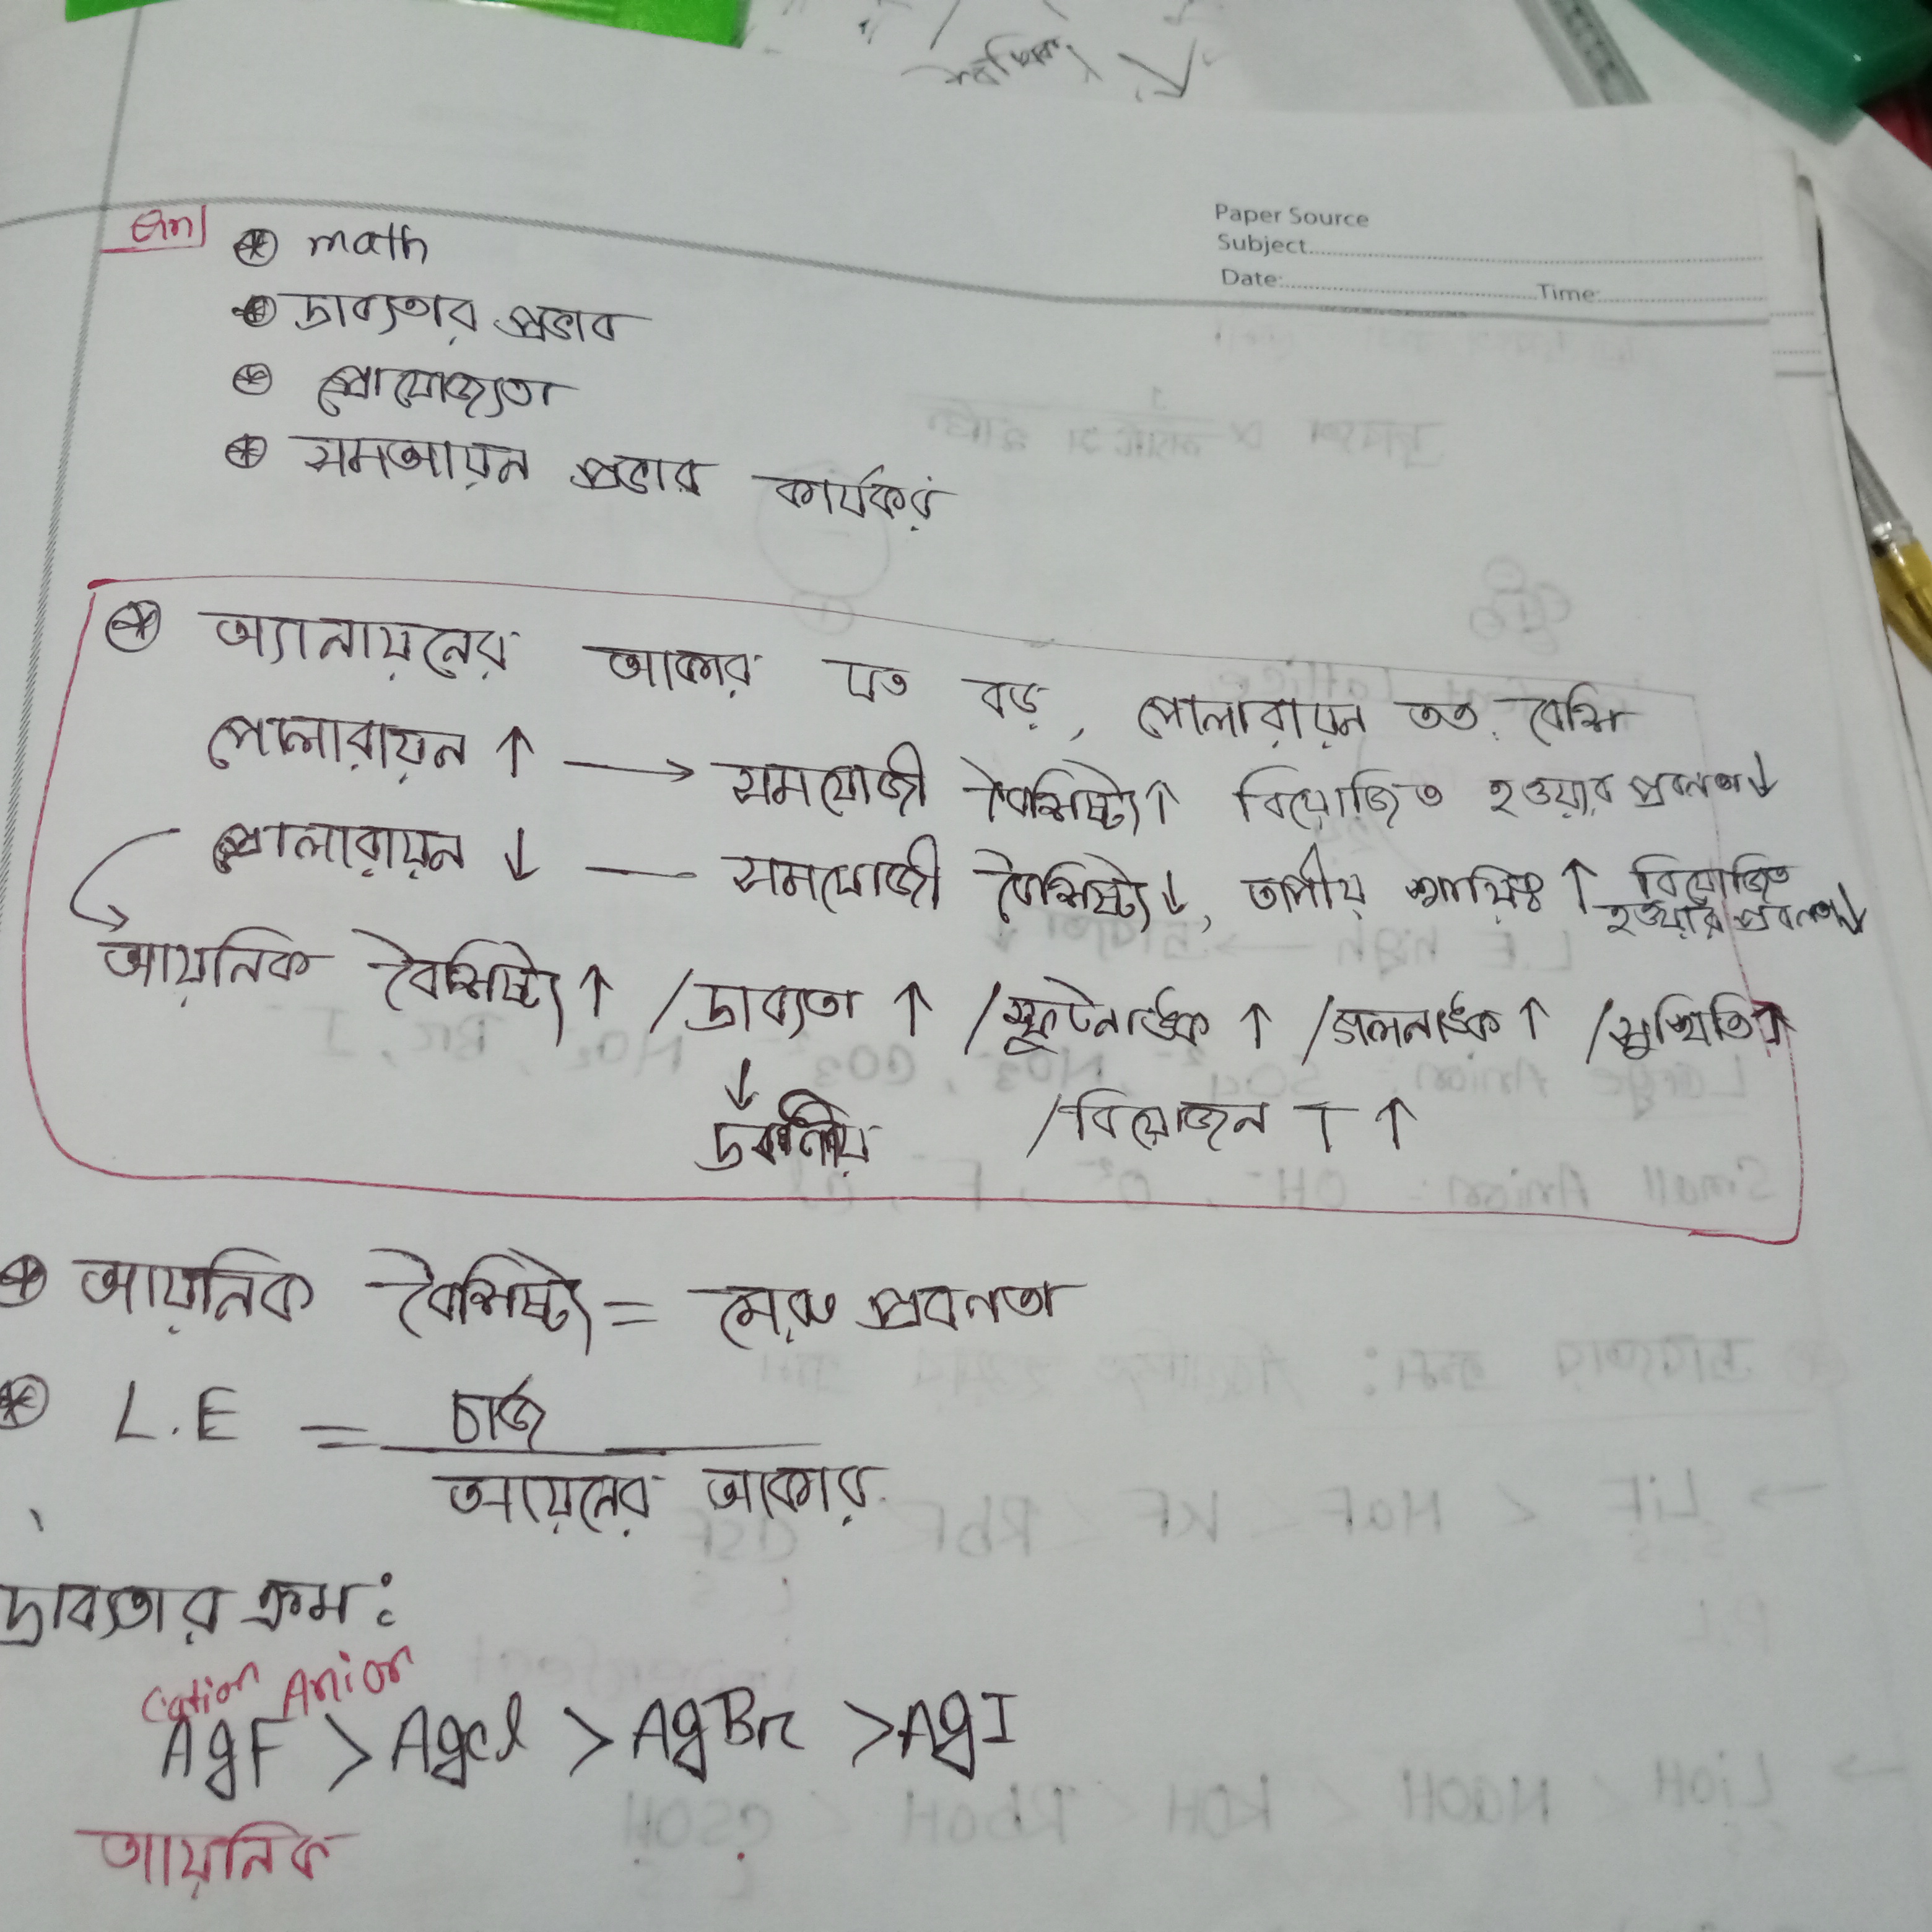 Paper Source
Subject
Date: Time:
Qn
math
দ্রাব্যতার প্রভাব
প্রোযোজ্যতা
সমআয়ন প্রভাব কার্যকর
অ্যানায়নের আকার যত বড়, পোলারায়ন তত বেশি
পোলারায়ন ↑ → সমযোজী বৈশিষ্ট্য ↑ বিয়োজিত হওয়ার প্রবনতা ↓
পোলারায়ন ↓ — সমযোজী বৈশিষ্ট্য ↓, তাপীয় স্থায়িত্ব ↑ বিয়োজিত হওয়ার প্রবনতা ↓
আয়নিক বৈশিষ্ট্য ↑ / দ্রাব্যতা ↑ / স্ফুটনাঙ্ক ↑ / গলনাঙ্ক ↑ / সুস্থিতি ↑
↓
দ্রবণীয় / বিয়োজন T ↑
আয়নিক বৈশিষ্ট্য = মেরু প্রবনতা
L.E = চার্জ
আয়নের আকার
দ্রাব্যতার ক্রম:
Cation Anion
AgF > AgCl > AgBr > AgI
আয়নিক